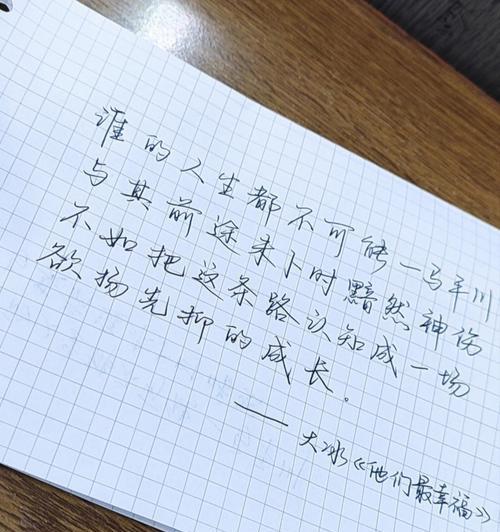 谁的人生都不可能一马平川
与其前途未卜时黯然神伤
不如把这条路认知成一场
欲扬先抑的成长。
——大冰《他们最幸福》